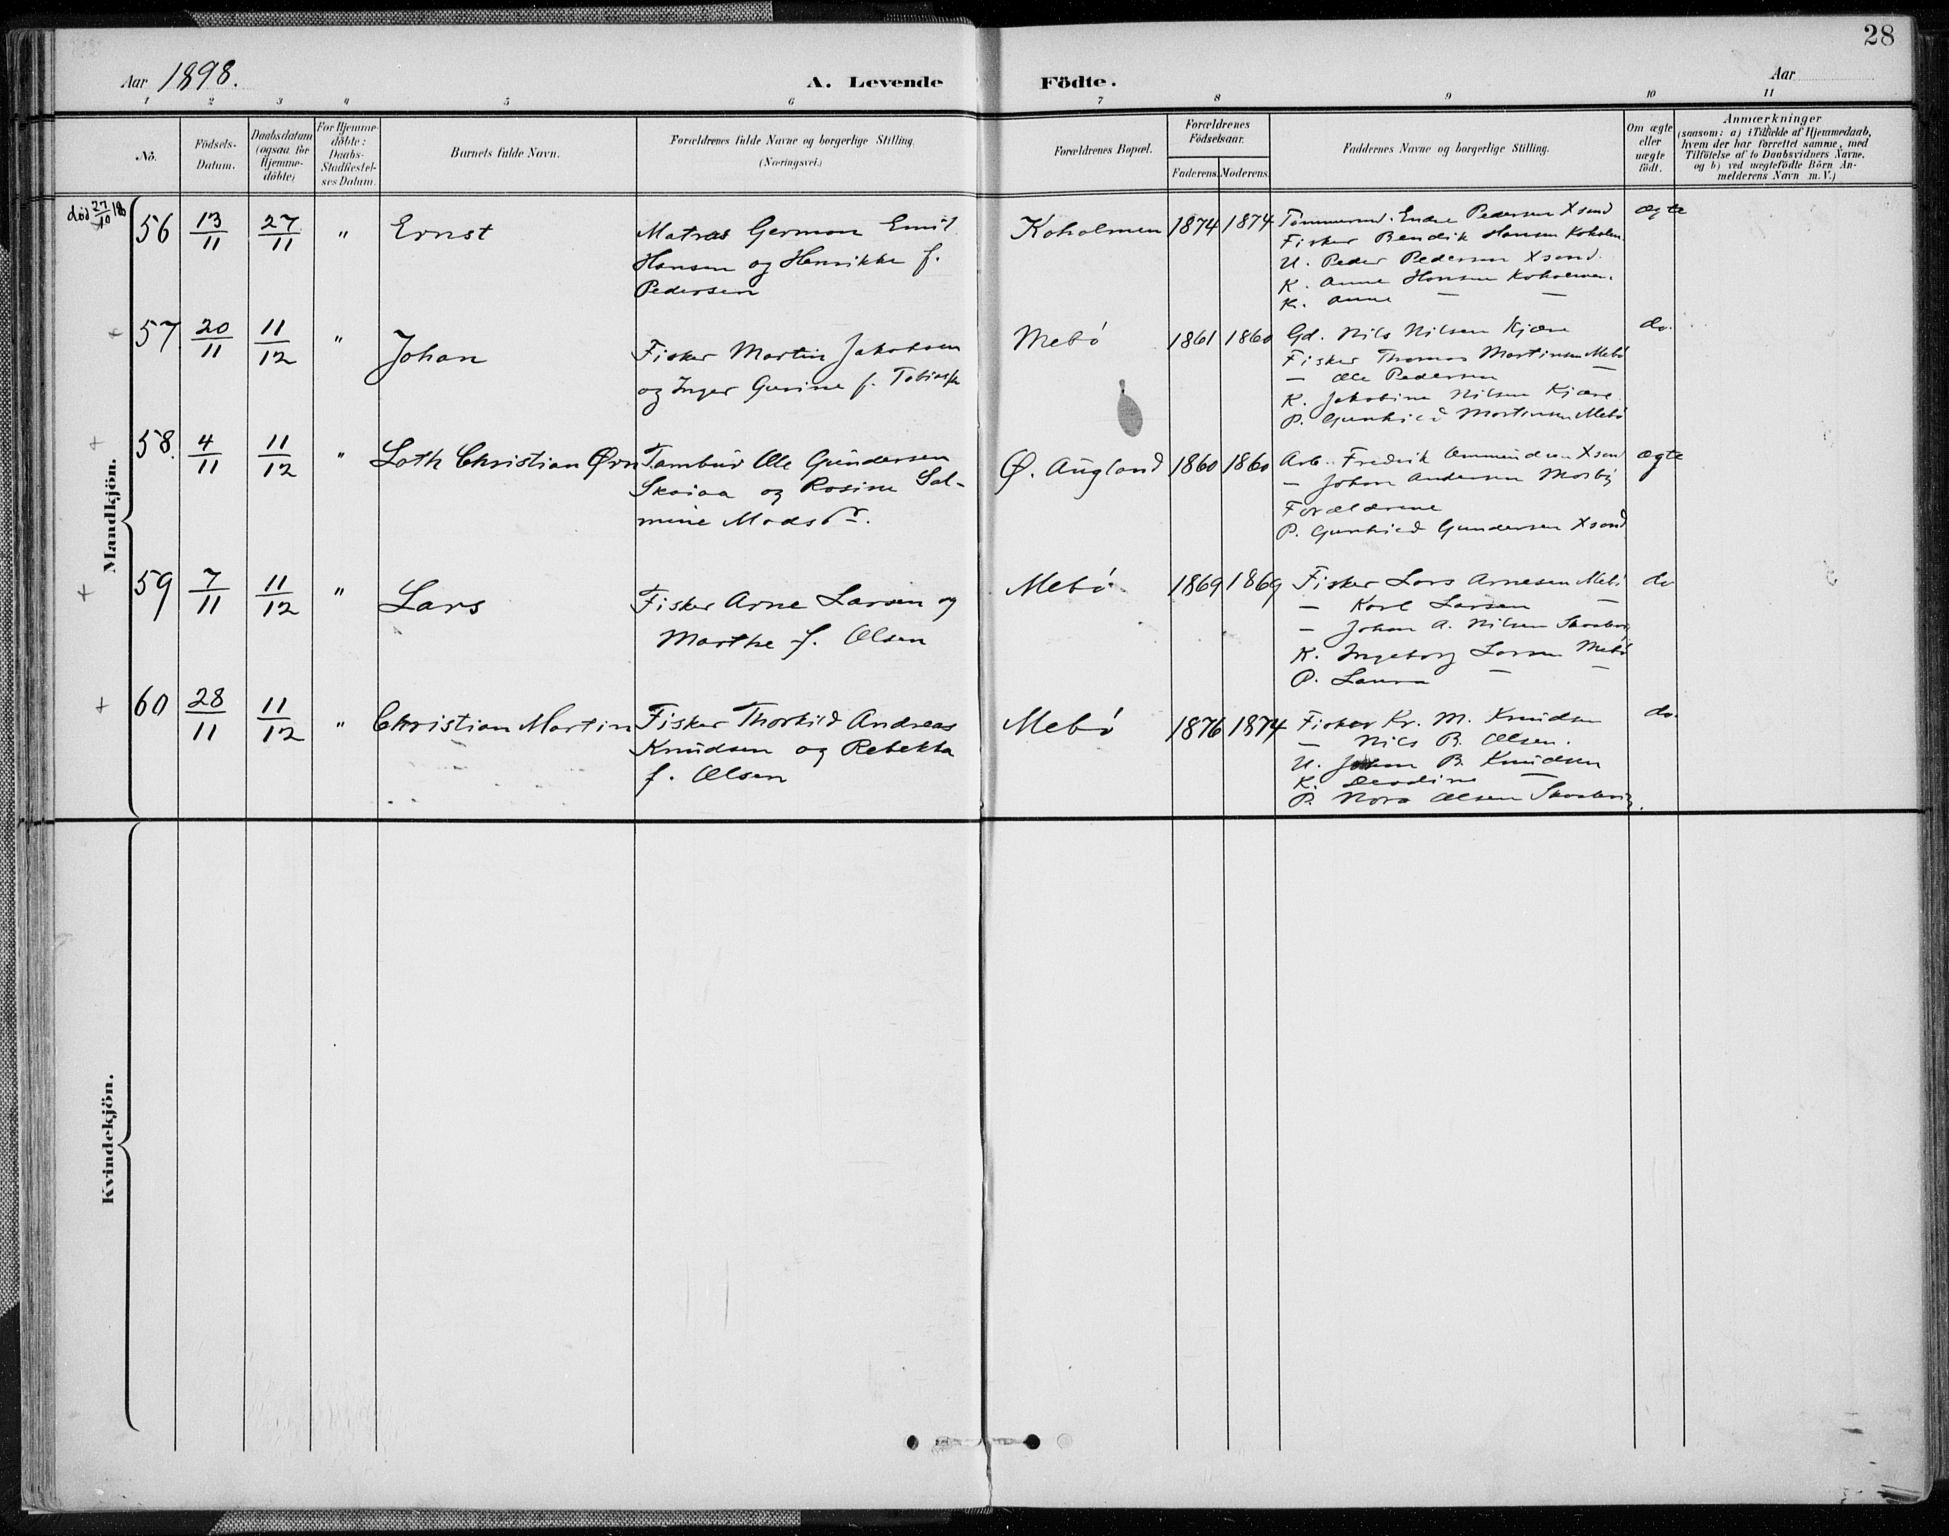 28
Aar 1898.
A. Levende Födte.
Aar
1 2 3 4 5 6 7 8 9 10 11
No.
Födsels-Datum.
Daabsdatum (ogsaa for Hjemme-döbte)
For Hjemme-döbte: Daabs-Stadfæstel-ses Datum.
Barnets fulde Navn.
Forældrenes fulde Navne og borgerlige Stilling.
(Næringsvei.)
Forældrenes Bopæl.
Forældrenes Födselsaar.
Faderens. Moderens.
Faddernes Navne og borgerlige Stilling.
Om ægte eller uægte födt.
Anmærkninger
(saasom: a) i Tilfælde af Hjemmedaab,
hvem der har forrettet samme, med
Tilföielse af to Daabsvidners Navne,
og b) ved uægtefödte Börn An-
melderens Navn m. V.)
Mandkjön.
død 27/10 18
56 13/11 27/11 " Ernst
Matros German Emil
Hansen og Henrikke f.
Pedersen
Koholmen 1874 1874
Tømmermd. Endre Pedersen Xsand
Fisker Bendik Hansen Koholm.
U. Peder Pedersen Xsand.
K. Anne Hansen Koholmen.
K. Anne — —
ægte
+ 57 20/11 11/12 " Johan
Fisker Martin Jakobsen
og Inger Gurine f. Tobiass
Mebø 1861 1860
Gd. Nils Nilsen Kjære
Fisker Thomas Martinsen Mebø
— Ole Pedersen —
K. Jakobine Nilsen Kjære
P. Gunhild Martinsen Mebø
do.
+ 58. 4/11 11/12 " Loth Christian Ørn
Tambur Ole Gundersen
Skaiaa og Rosine Sal-
mine Madsdr.
Ø. Augland 1860 1860
Arb. Fredrik Ommundsen Xsand
— Johan Andersen Mosby
Forældrene
P. Gunhild Gundersen Xsand
ægte
+ 59 7/11 11/12 " Lars
Fisker Arne Larsen og
Marthe f. Olsen
Mebø 1869 1869
Fisker Lars Arnesen Mebø
— Karl Larsen —
— Johan A. Nilsen
K. Ingeborg Larsen Mebø
P. Laura — —
do
+ 60 28/11 11/12 " Christian Martin
Fisker Thorkild Andreas
Knudsen og Rebekka
f. Olsen
Mebø 1876 1874
Fisker Kr. M. Knudsen
— Nils B. Olsen.
U. Johan B. Knudsen
K. —
P. Nora Olsen
do.
Kvindekjön.